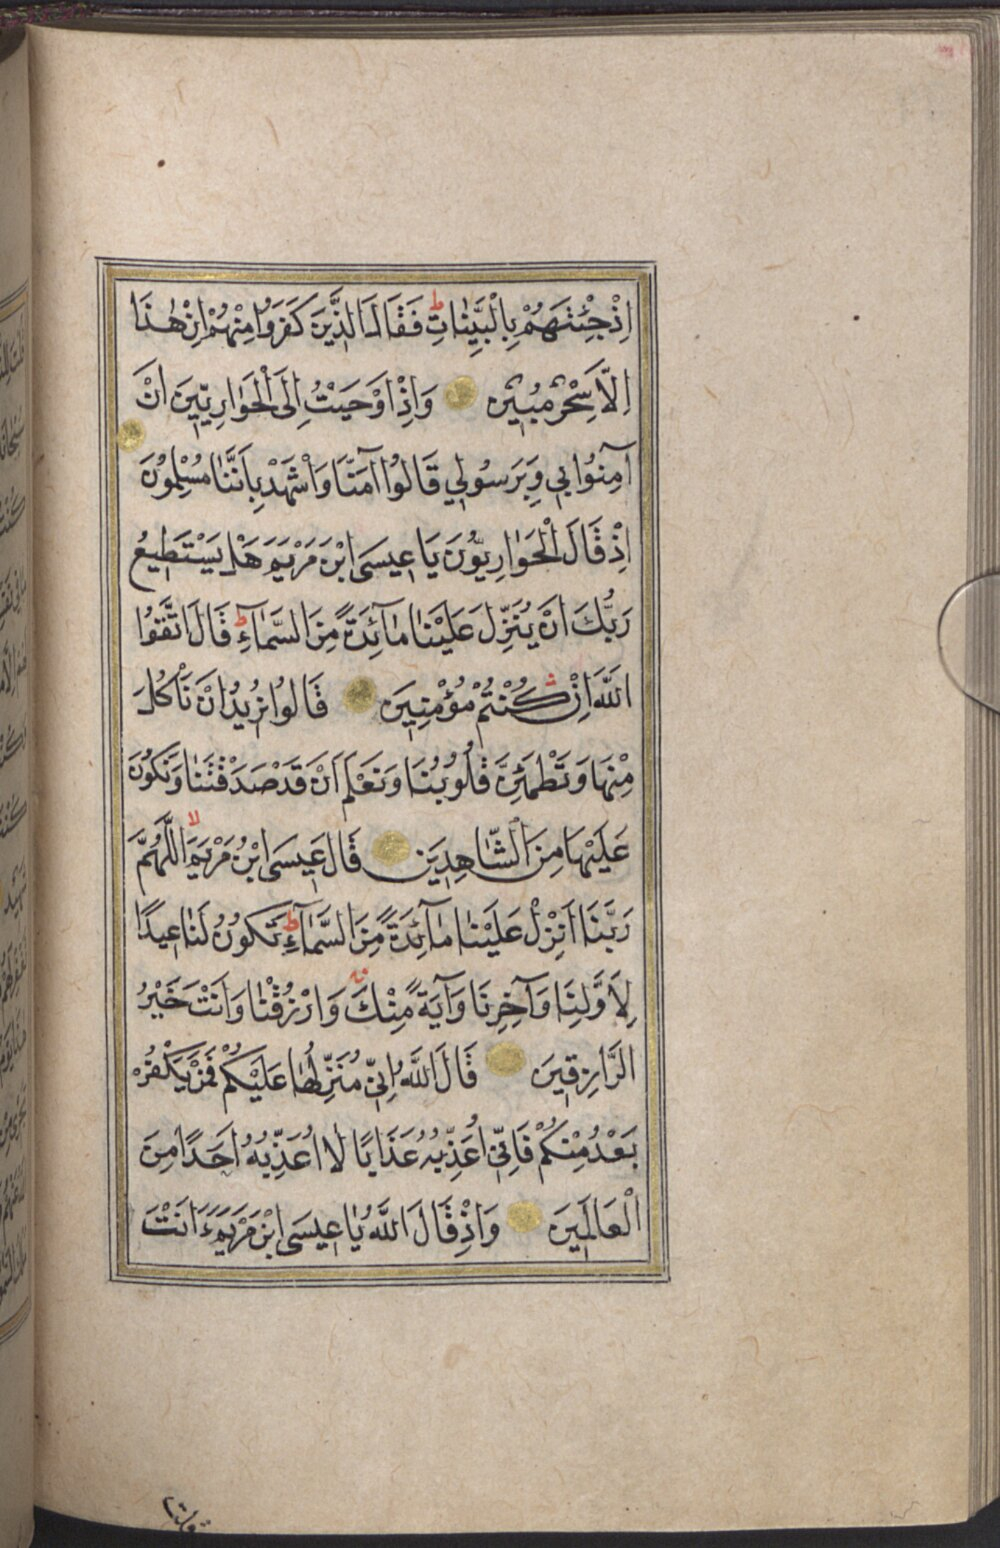 اِذْ جِئْتَهُمْ بِالْبَيِّنَاتِ ط فَقَالَ الَّذِينَ كَفَرُوا مِنْهُمْ اِنْ هٰذَا
اِلَّا سِحْرٌ مُبِينٌ وَاِذْ اَوْحَيْتُ اِلَى الْحَوَارِيّينَ اَنْ
آمِنُوا بِي وَبِرَسُولِي قَالُوا آمَنَّا وَاشْهَدْ بِاَنَّنَا مُسْلِمُونَ
اِذْ قَالَ الْحَوَارِيُّونَ يَا عِيسَى ابْنَ مَرْيَمَ هَلْ يَسْتَطِيعُ
رَبُّكَ اَنْ يُنَزِّلَ عَلَيْنَا مَآئِدَةً مِنَ السَّمَآءِ ط قَالَ اتَّقُوا
اللّٰهَ اِنْ كُنْتُمْ مُؤْمِنِينَ قَالُوا نُرِيدُ اَنْ نَأْكُلَ
مِنْهَا وَتَطْمَئِنَّ قُلُوبُنَا وَنَعْلَمَ اَنْ قَدْ صَدَقْتَنَا وَنَكُونَ
عَلَيْهَا مِنَ الشَّاهِدِينَ قَالَ عِيسَى ابْنُ مَرْيَمَ لا اللّٰهُمَّ
رَبَّنَا اَنْزِلْ عَلَيْنَا مَآئِدَةً مِنَ السَّمَآءِ ط تَكُونُ لَنَا عِيدًا
لِاَوَّلِنَا وَآخِرِنَا وَآيَةً مِنْكَ وَارْزُقْنَا وَاَنْتَ خَيْرُ
الرَّازِقِينَ قَالَ اللّٰهُ اِنِّي مُنَزِّلُهَا عَلَيْكُمْ فَمَنْ يَكْفُرْ
بَعْدُ مِنْكُمْ فَاِنِّي اُعَذِّبُهُ عَذَابًا لَا اُعَذِّبُهُ اَحَدًا مِنَ
الْعَالَمِينَ وَاِذْ قَالَ اللّٰهُ يَا عِيسَى ابْنَ مَرْيَمَ ءَاَنْتَ